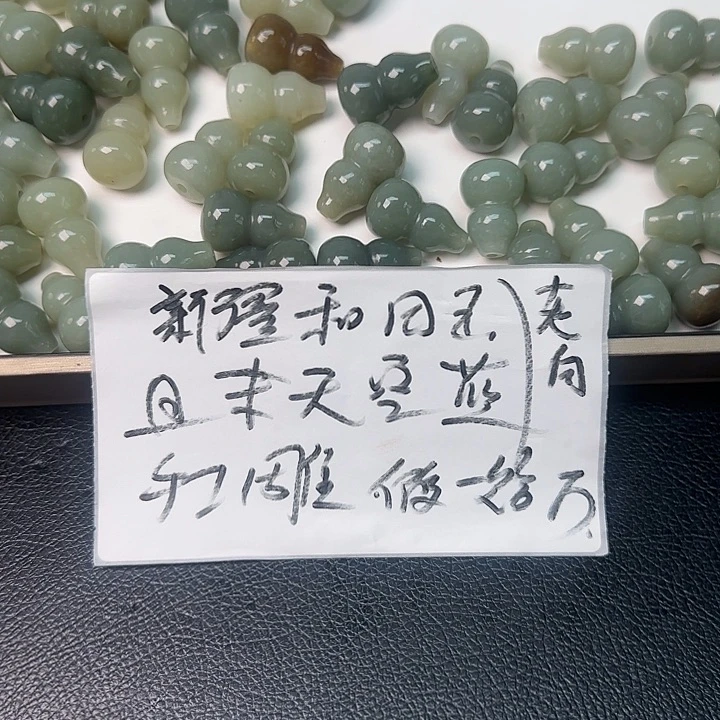 新疆和田玉
且末天空蓝
手工雕 假一赔万